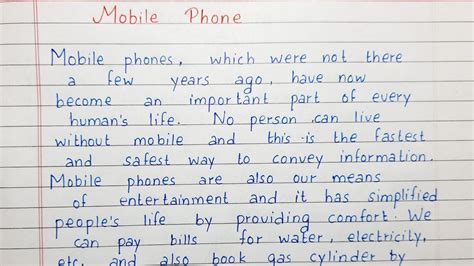 Mobile Phone
Mobile phones, which were not there
a few years ago, have now
become an important part of every
human's life. No person can live
without mobile and this is the fastest
and safest way to convey information.
Mobile phones are also our means
of entertainment and it has simplified
people's life by providing comfort. We
can pay bills for water, electricity,
etc. and also book gas cylinder by